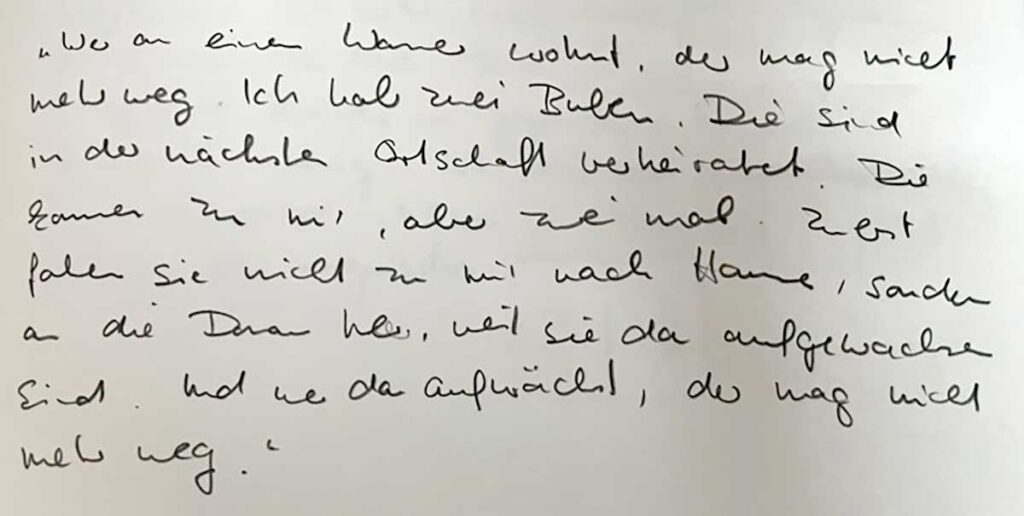 „Wer an einem Wasser wohnt, der mag nicht
mehr weg. Ich hab zwei Buben. Die sind
in der nächsten Ortschaft verheiratet. Die
kommen zu mir, aber zweimal. Zuerst
fahren sie nicht zu mir nach Hause, sondern
an die Donau her, weil sie da aufgewachsen
sind. Und wer da aufwächst, der mag nicht
mehr weg.“